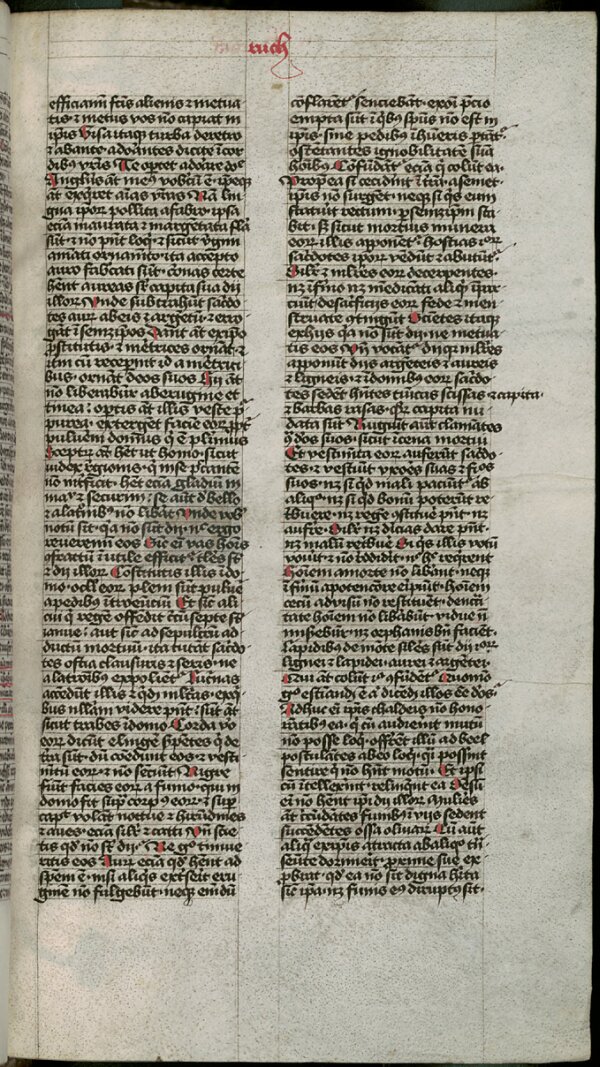 ruch
efficiamī fctīs alienis & metua
tis · & metus vos nō capiat in
ip̄is Visa itaq̨ turba de retro
& abante · adorantes dicite ī cor
dibus vr̄is Te oportet adorare dn̄e
Angl̄us aūt meꝰ vobcū ē · ip̄e
aūt exq̄ret aīas vr̄as Nā lin
gua ip̄oꝝ polita a fabro · ip̄a
eciā inaurata & inargētata fl̄a
sūt · & nō pn̄t loq̄ · & sicut v̓gini
amāti ornamēto · ita accepto
auro fabcati sūt · cōnas certe
hēnt aureas sr̄ capita sua dii
illoꝝ Vnde subtrahūt sac̓do
tes auꝝ ab eis & argētū · & ero
gāt ī semz ip̄os Dant aūt ex ip̄o
ꝓstitutis · & meretrices ornāt · &
itm̄ cū recep̄int id a meretri
bus · ornāt deos suos Hii aūt
nō liberātur ab erugine et
tinea · optis aūt illis veste pr̄
purea · exterget faciē eoꝝ ꝓpt̓
pulu̓em domus q̄ ē plimus
Sceptꝝ aūt h̄et vt homo · sicut
iudex regionis · q̄ in se peccantē
nō int̓ficit · het eciā gladiū in
manu & securim · se aūt d̓ bello
& a latroībus nō lib̓at Vnde vob̄
notū sit · qa nō sūt dii · nō ergo
reu̓emini eos Sic eī vas hoīs
ɔfractū īutile efficit̓ · tles sūt
& dii illoꝝ Cōstitutis illis ī do
mo · ocl̄i eoꝝ plēni sūt pulu̓e
a pedibus ītroeuntiū Et sic̄ ali
cui q̄ regē offendit circūsepte sūt
ianue · aut sic̄ ad sepulcrū ad
ductū mortuū · ita tutāt sac̓do
tes ostia clausuris & seris · ne
a latroībus expoliēt̓ Lucernas
accēdūt illis & qdē ml̄tas · ex q̄
bus nullam videre pn̄t · sūt aūt
sicut trabes ī domo Corda vo
eoꝝ dicūt elīg̓e s̓petes q̄ de
tr̄a sūt · dū comedūt eos & vesti
mētū eoꝝ · & nō seciūt Nigre
fiūt facies eoꝝ a fumo · q̄ in
domo fit Sup̄ corpꝰ eoꝝ · & sup̄
capt̓ volāt noctue & hirūdines
& aues · eciā sil̄r & catti Vn̄ scia
tis qd̓ nō sūt dii · Ne gͦ timue
ritis eos Auꝝ eciā qd̓ hēnt ad
spēm ē · nisi aliq̄s ext̓serit eru
ginē nō fulgebūt · neq̄ eī dū
cōflarēt̓ senciebāt · ex oī p̄cio
empta sūt ī qbꝰ spūs nō est in
ip̄is · sine pedibus ī hūeris portāt̓
ostētantes ignobilitatē suā
hoībꝰ Cōfūdāt̓ eciā q̄ colūt ea ·
Propt̓ea si cecidīnt ī tr̄ā · a semet
ip̄is nō surgēt · neq̄ si q̄s eum
statuīt rectum · ꝑ semz ip̄m sta
bit · s̓ sicut mortuis munera
eoꝝ illis apponēt̓ · hostias īoꝝ
sac̓dotes ip̄oꝝ vēdūt & abutūt̓
Sil̄r & ml̄ieres eoꝝ decerpentes ·
nz īfirmo nz medicāti aliq̄ īp̄ar
ciūt · de sac̓ficiis eoꝝ fete & men
struate ɔtingūt Scientes itaq̨
ex hiis qa nō sūt dii · ne metua
tis eos Vn̄ vocāt̓ dii · qa ml̄ieres
apponūt diis argēteis & aureis
& ligneis · & ī domibus eoꝝ sac̓do
tes sedēt hn̄tes tunicas scissas & capita ·
& barbas rasas · quoꝝ capita nu
data sūt Rugiūt aūt clamātes
ɔ̄ deos suos · sicut ī cena mortui
Et vestimēta eoꝝ auferūt sac̓do
tes · & vestiūt vxores suas & filios
suos · nz si qd̓ mali paciūt̓ ab
aliq̄ · nz si qd̓ boni potērūt re
tbuere · nz regē ɔstituē pn̄t · nz
aufre Sil̄r nz diuicias dare pn̄t ·
nz malū retbue Si q̄s illis votū
vouīt · & nō reddidīt · nͨ hͦ reqrent
Hoīem a morte nō libāt · neq̄
ī firmū a potenciore eripiūt · hoīem
cecū ad visū nō restituēt · de ncc̄i
tate hoīem nō libabūt · vidue nō
misebūt̓ · nz orphanis bn̄ faciēt ·
Lapidibus de monte sīles sūt dii eoꝝ ·
lignei & lapidei · aurei & argētei ·
Qui aūt colūt ea ɔfūdēt̓ Quomo
gͦ estiandū ē a dicēdī illos eē deos ·
Adhuc eī ip̄is chaldeis nō hono
rātibꝰ ea · q̄ cū audierīnt mutū
nō posse loq̄ · offerēt illū ad beel
postulātes ab eo loq̄ · q̄ possint
sentire q̄ nō hn̄t motū · Et ip̄i
cū ītellexerīt · relinquēt ea Sensū
eī nō hent ip̄i dii illoꝝ Mulieēs
aūt circūdate funibꝰ ī viis sedent
succēdētes ossa oliuaꝝ Cū aūt
aliq̄ ex ip̄is attracta ab aliq̄ trā
seūte dormierit · ꝓxime sue ex
ꝓbrat · qd̓ ea nō sit digna hīta
sic̄ ip̄a · nz funis eꝰ diruptus sit ·